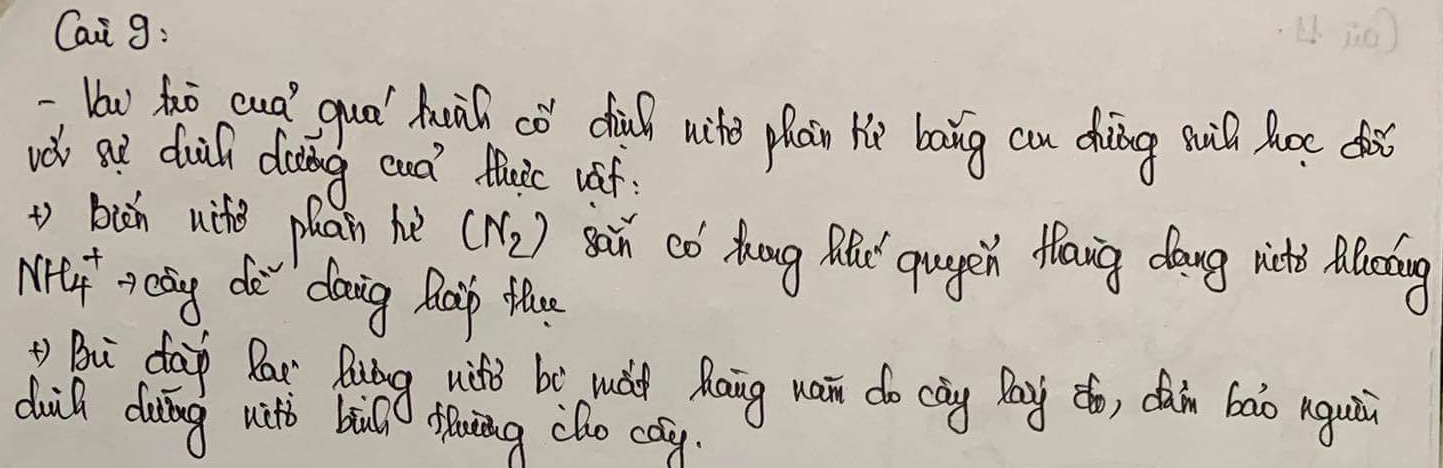 Câu 9:
- Vai trò của quá trình cố định nitơ phân tử bằng con đường sinh học đối
với sự dinh dưỡng của thực vật:
+) biến nitơ phân tử (N₂) sẵn có trong khí quyển thành dạng nitơ khoáng
NH₄⁺ → cây dễ dàng hấp thụ
+) Bù đắp lại lượng nitơ bị mất hàng năm do cây lấy đi, đảm bảo nguồn
dinh dưỡng nitơ bình thường cho cây.